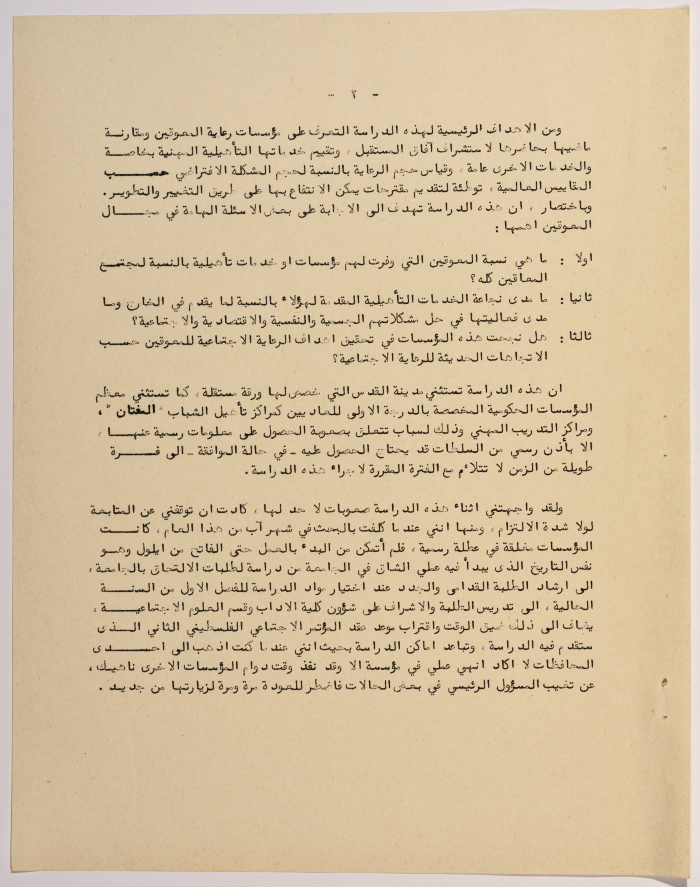 - ٢ -
ومن الاهداف الرئيسية لهذه الدراسة التعرف على مؤسسات رعاية المعوقين ومقارنة
ماضيها بحاضرها لاستشراف آفاق المستقبل ، وتقييم خدماتها التأهيلية المهنية بخاصة
والخدمات الاخرى عامة ، وقياس حجم الرعاية بالنسبة لحجم المشكلة الافتراضي حسب
المقاييس العالمية ، توطئة لتقديم مقترحات يمكن الانتفاع بها على طريق التغيير والتطوير .
وباختصار ، ان هذه الدراسة تهدف الى الاجابة على بعض الاسئلة الهامة في مجال
المعوقين اهمها :
اولا : ما هي نسبة المعوقين التي وفرت لهم مؤسسات او خدمات تأهيلية بالنسبة لمجتمع
المعاقين كله ؟
ثانيا : ما مدى نجاعة الخدمات التأهيلية المقدمة لهؤلاء بالنسبة لما يقدم في الخارج وما
مدى فعاليتها في حل مشكلاتهم الجسمية والنفسية والاقتصادية والاجتماعية ؟
ثالثا : هل نجحت هذه المؤسسات في تحقيق اهداف الرعاية الاجتماعية للمعوقين حسب
الاتجاهات الحديثة للرعاية الاجتماعية ؟
ان هذه الدراسة تستثني مدينة القدس التي خصص لها ورقة مستقلة ، كما تستثني معظم
المؤسسات الحكومية المخصصة بالدرجة الاولى للعاديين كمراكز تأهيل الشباب " الفتان " ،
ومراكز التدريب المهني وذلك لسباب تتعلق بصعوبة الحصول على معلومات رسمية عنها ،
الا بأذن رسمي من السلطات قد يحتاج الحصول عليه - في حالة الموافقة - الى فترة
طويلة من الزمن لا تتلاءم مع الفترة المقررة لاجراء هذه الدراسة .
ولقد واجهتني اثناء هذه الدراسة صعوبات لا حد لها ، كادت ان توقفني عن المتابعة
لولا شدة الالتزام ، ومنها انني عندما كلفت بالبحث في شهر آب من هذا العام ، كانت
المؤسسات مغلقة في عطلة رسمية ، فلم أتمكن من البدء بالعمل حتى الفاتح من ايلول وهو
نفس التاريخ الذي يبدأ فيه عملي الشاق في الجامعة من دراسة لطلبات الالتحاق بالجامعة ،
الى ارشاد الطلبة القدامى والجدد عند اختيار مواد الدراسة للفصل الاول من السنة
الحالية ، الى تدريس الطلبة والاشراف على شؤون كلية الاداب وقسم العلوم الاجتماعية ،
يضاف الى ذلك ضيق الوقت واقتراب موعد عقد المؤتمر الاجتماعي الفلسطيني الثاني الذي
ستقدم فيه الدراسة ، وتباعد اماكن الدراسة بحيث انني عندما كنت اذهب الى احدى
المحافظات لا اكاد انهي عملي في مؤسسة الا وقد نفذ وقت دوام المؤسسات الاخرى ناهيك ،
عن تغيب المسؤول الرئيسي في بعض الحالات فاضطر للعودة مرة ومرة لزيارتها من جديد .